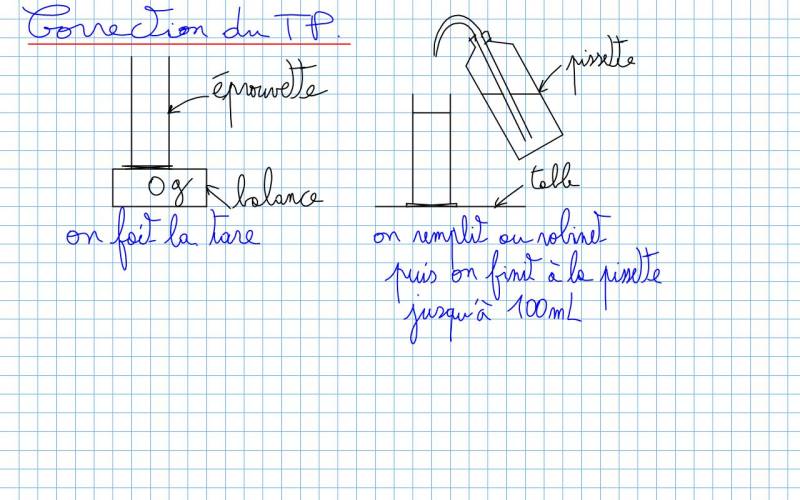 Correction du TP.
éprouvette
pissette
0g
balance
table
on fait la tare
on remplit au robinet
puis on finit à la pissette
jusqu'à 100mL